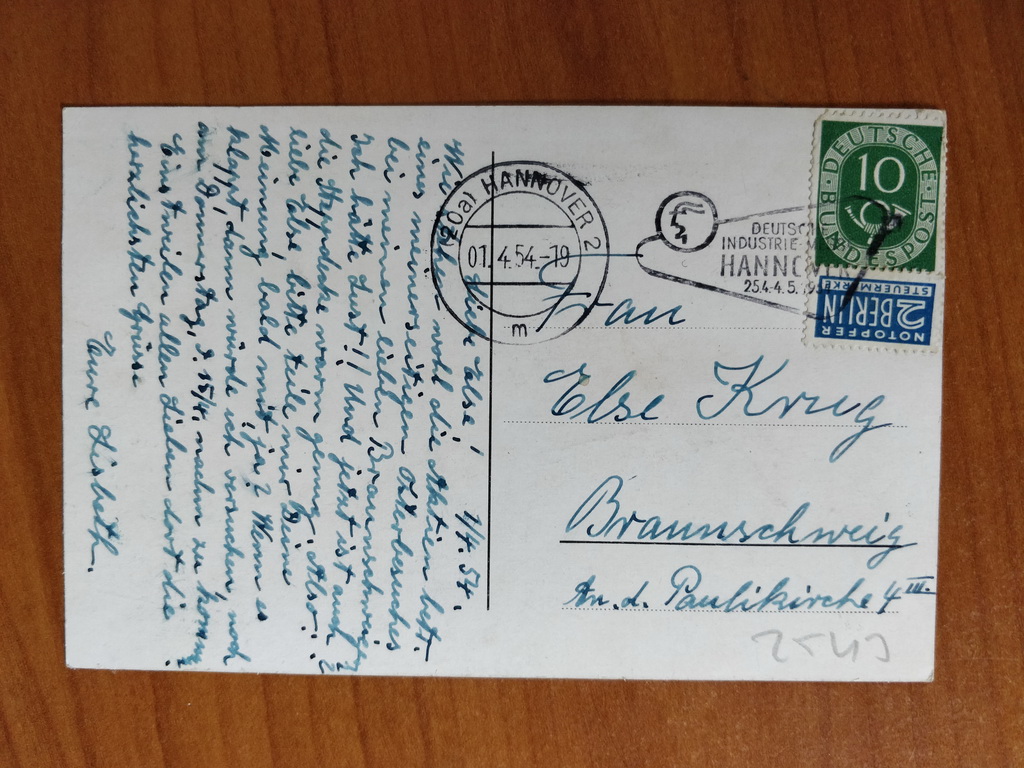 Liebe Else! 1/4.54.
Wie stehen wohl die Aktien betr.
eines meinerseitigen Osterbesuches
bei meinen lieben Braunschweigern?
Ich hätte Lust!! Und jetzt ist auch
die Steppdecke warm genug. Also:
liebe Else, bitte teile mir Deine
Meinung bald mit, ja? Wenn es
klappt, dann würde ich versuchen, noch
am Donnerstag, d. 15/4. nachm. zu kommen.
Einstweilen allen Lieben dort die
herzlichsten Grüsse
Eure Lisbeth.
(20a) HANNOVER 2
01.4.54-19
m
DEUTSCH
INDUSTRIE-
HANNOVER
25.4.-4.5.19
DEUTSCHE BUNDESPOST
10
NOTOPFER
2 BERLIN
STEUERMARKE
Frau
Else Krug
Braunschweig
An. d. Paulikirche 4 III.